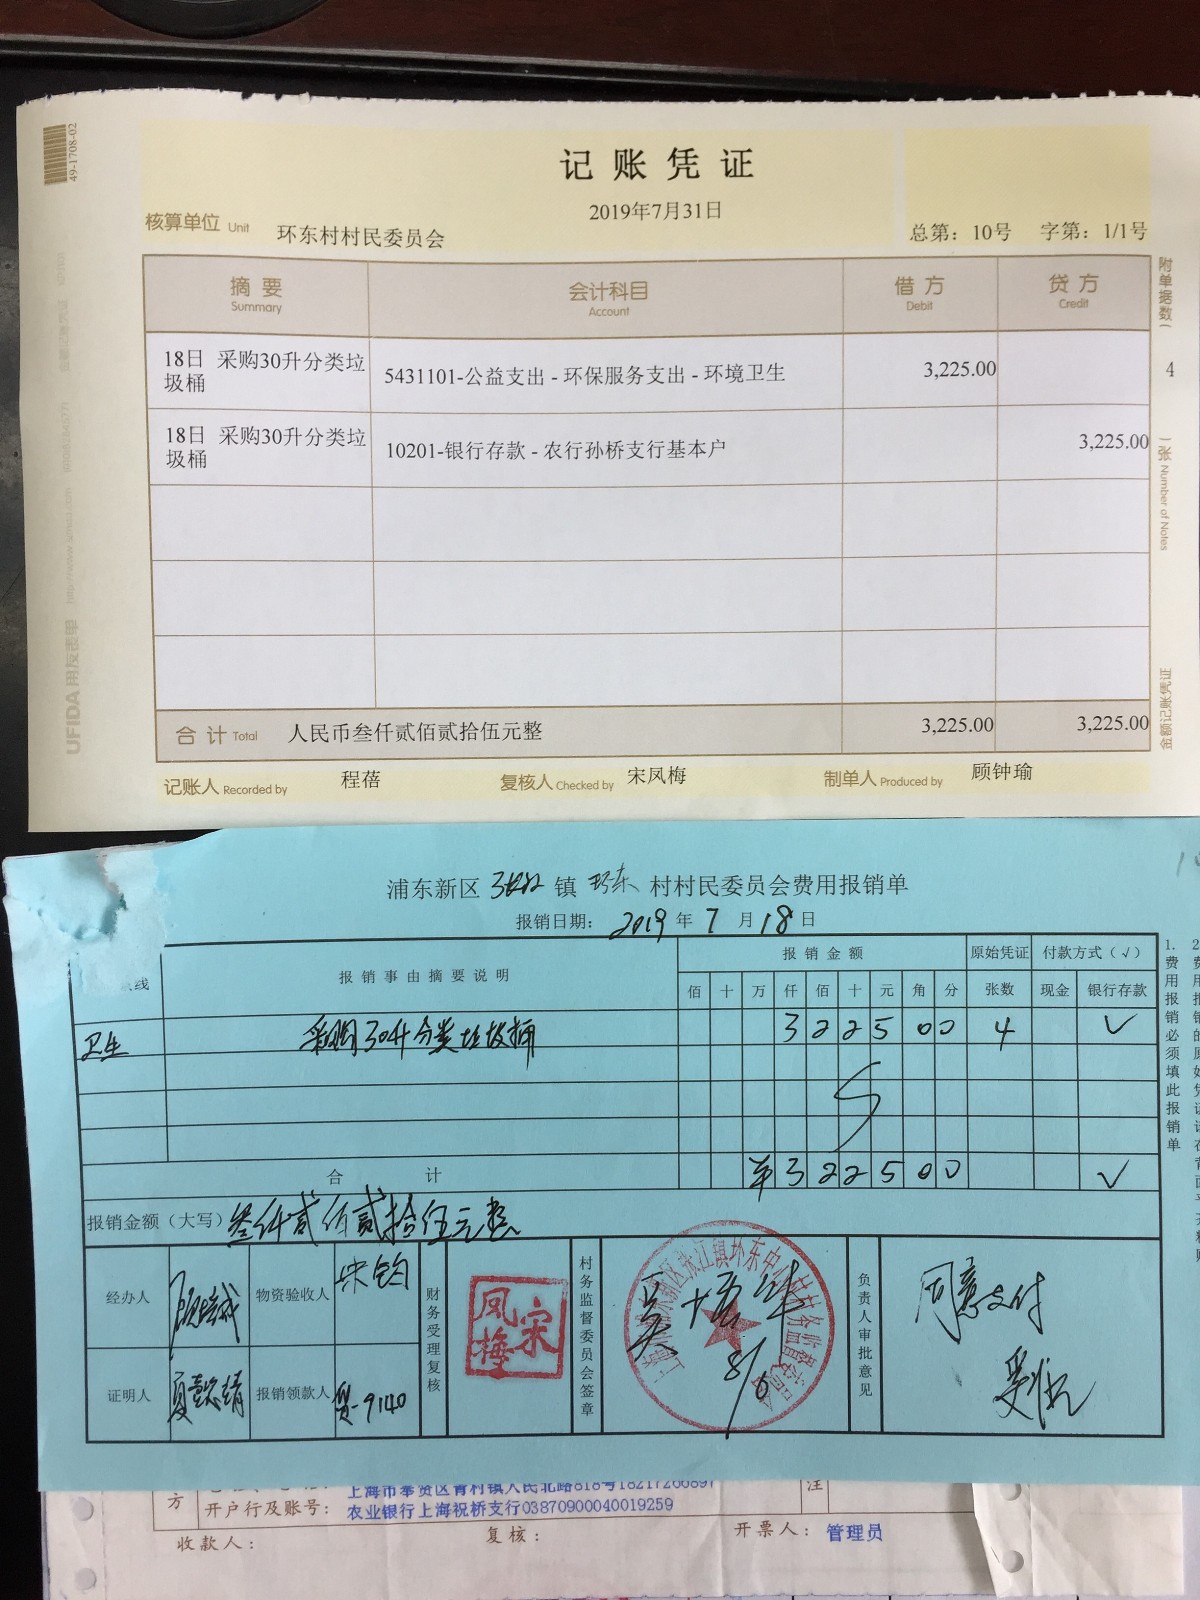 49-1708-02
记账凭证
2019年7月31日
核算单位 Unit 环东村村民委员会
总第：10号 字第：1/1号
摘要 会计科目 借方 贷方
Summary Account Debit Credit
18日 采购30升分类垃 5431101-公益支出 - 环保服务支出 - 环境卫生 3,225.00
圾桶
18日 采购30升分类垃 10201-银行存款 - 农行孙桥支行基本户 3,225.00
圾桶
合计 Total 人民币叁仟贰佰贰拾伍元整 3,225.00 3,225.00
记账人 Recorded by 程蓓 复核人 Checked by 宋凤梅 制单人 Produced by 顾钟瑜
附单据数（ 4 张） Number of Notes
金额记账凭证
UFIDA 用友表单
浦东新区 张江 镇 环东 村村民委员会费用报销单
报销日期： 2019 年 7 月 18 日
线 报销事由摘要说明 报销金额 原始凭证 付款方式（√）
佰 十 万 仟 佰 十 元 角 分 张数 现金 银行存款
卫生 采购30升分类垃圾桶 3 2 2 5 0 0 4 √
合计 ¥ 3 2 2 5 0 0 √
报销金额（大写） 叁仟贰佰贰拾伍元整
经办人 物资验收人 宋钧
证明人 报销领款人 9140
财务受理复核
宋凤梅
村务监督委员会签章
8/6
负责人审批意见
同意支付
1.费用报销必须填此报销单
方 上海市奉贤区青村镇人民北路818号18217266897 注
开户行及账号： 农业银行上海祝桥支行03870900040019259
收款人： 复核： 开票人： 管理员